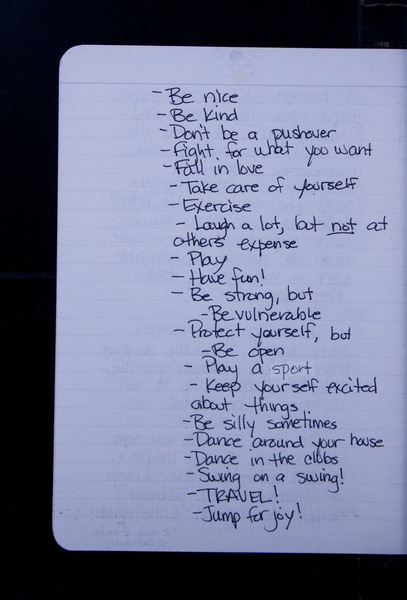 - Be nice
- Be kind
- Don't be a pushover
- Fight for what you want
- Fall in love
- Take care of yourself
- Exercise
- Laugh a lot, but not at
others expense
- Play
- Have fun!
- Be strong, but
- Be vulnerable
- Protect yourself, but
- Be open
- Play a sport
- Keep yourself excited
about things
- Be silly sometimes
- Dance around your house
- Dance in the clubs
- Swing on a swing!
- TRAVEL!
- Jump for joy!